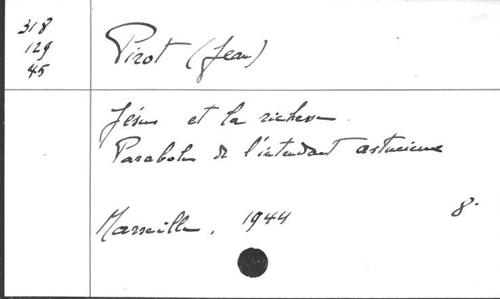 318
129
45
Pirot (Jean)
Jésus et la richesse
Parabole de l'intendant astucieux
Marseille, 1944 8°